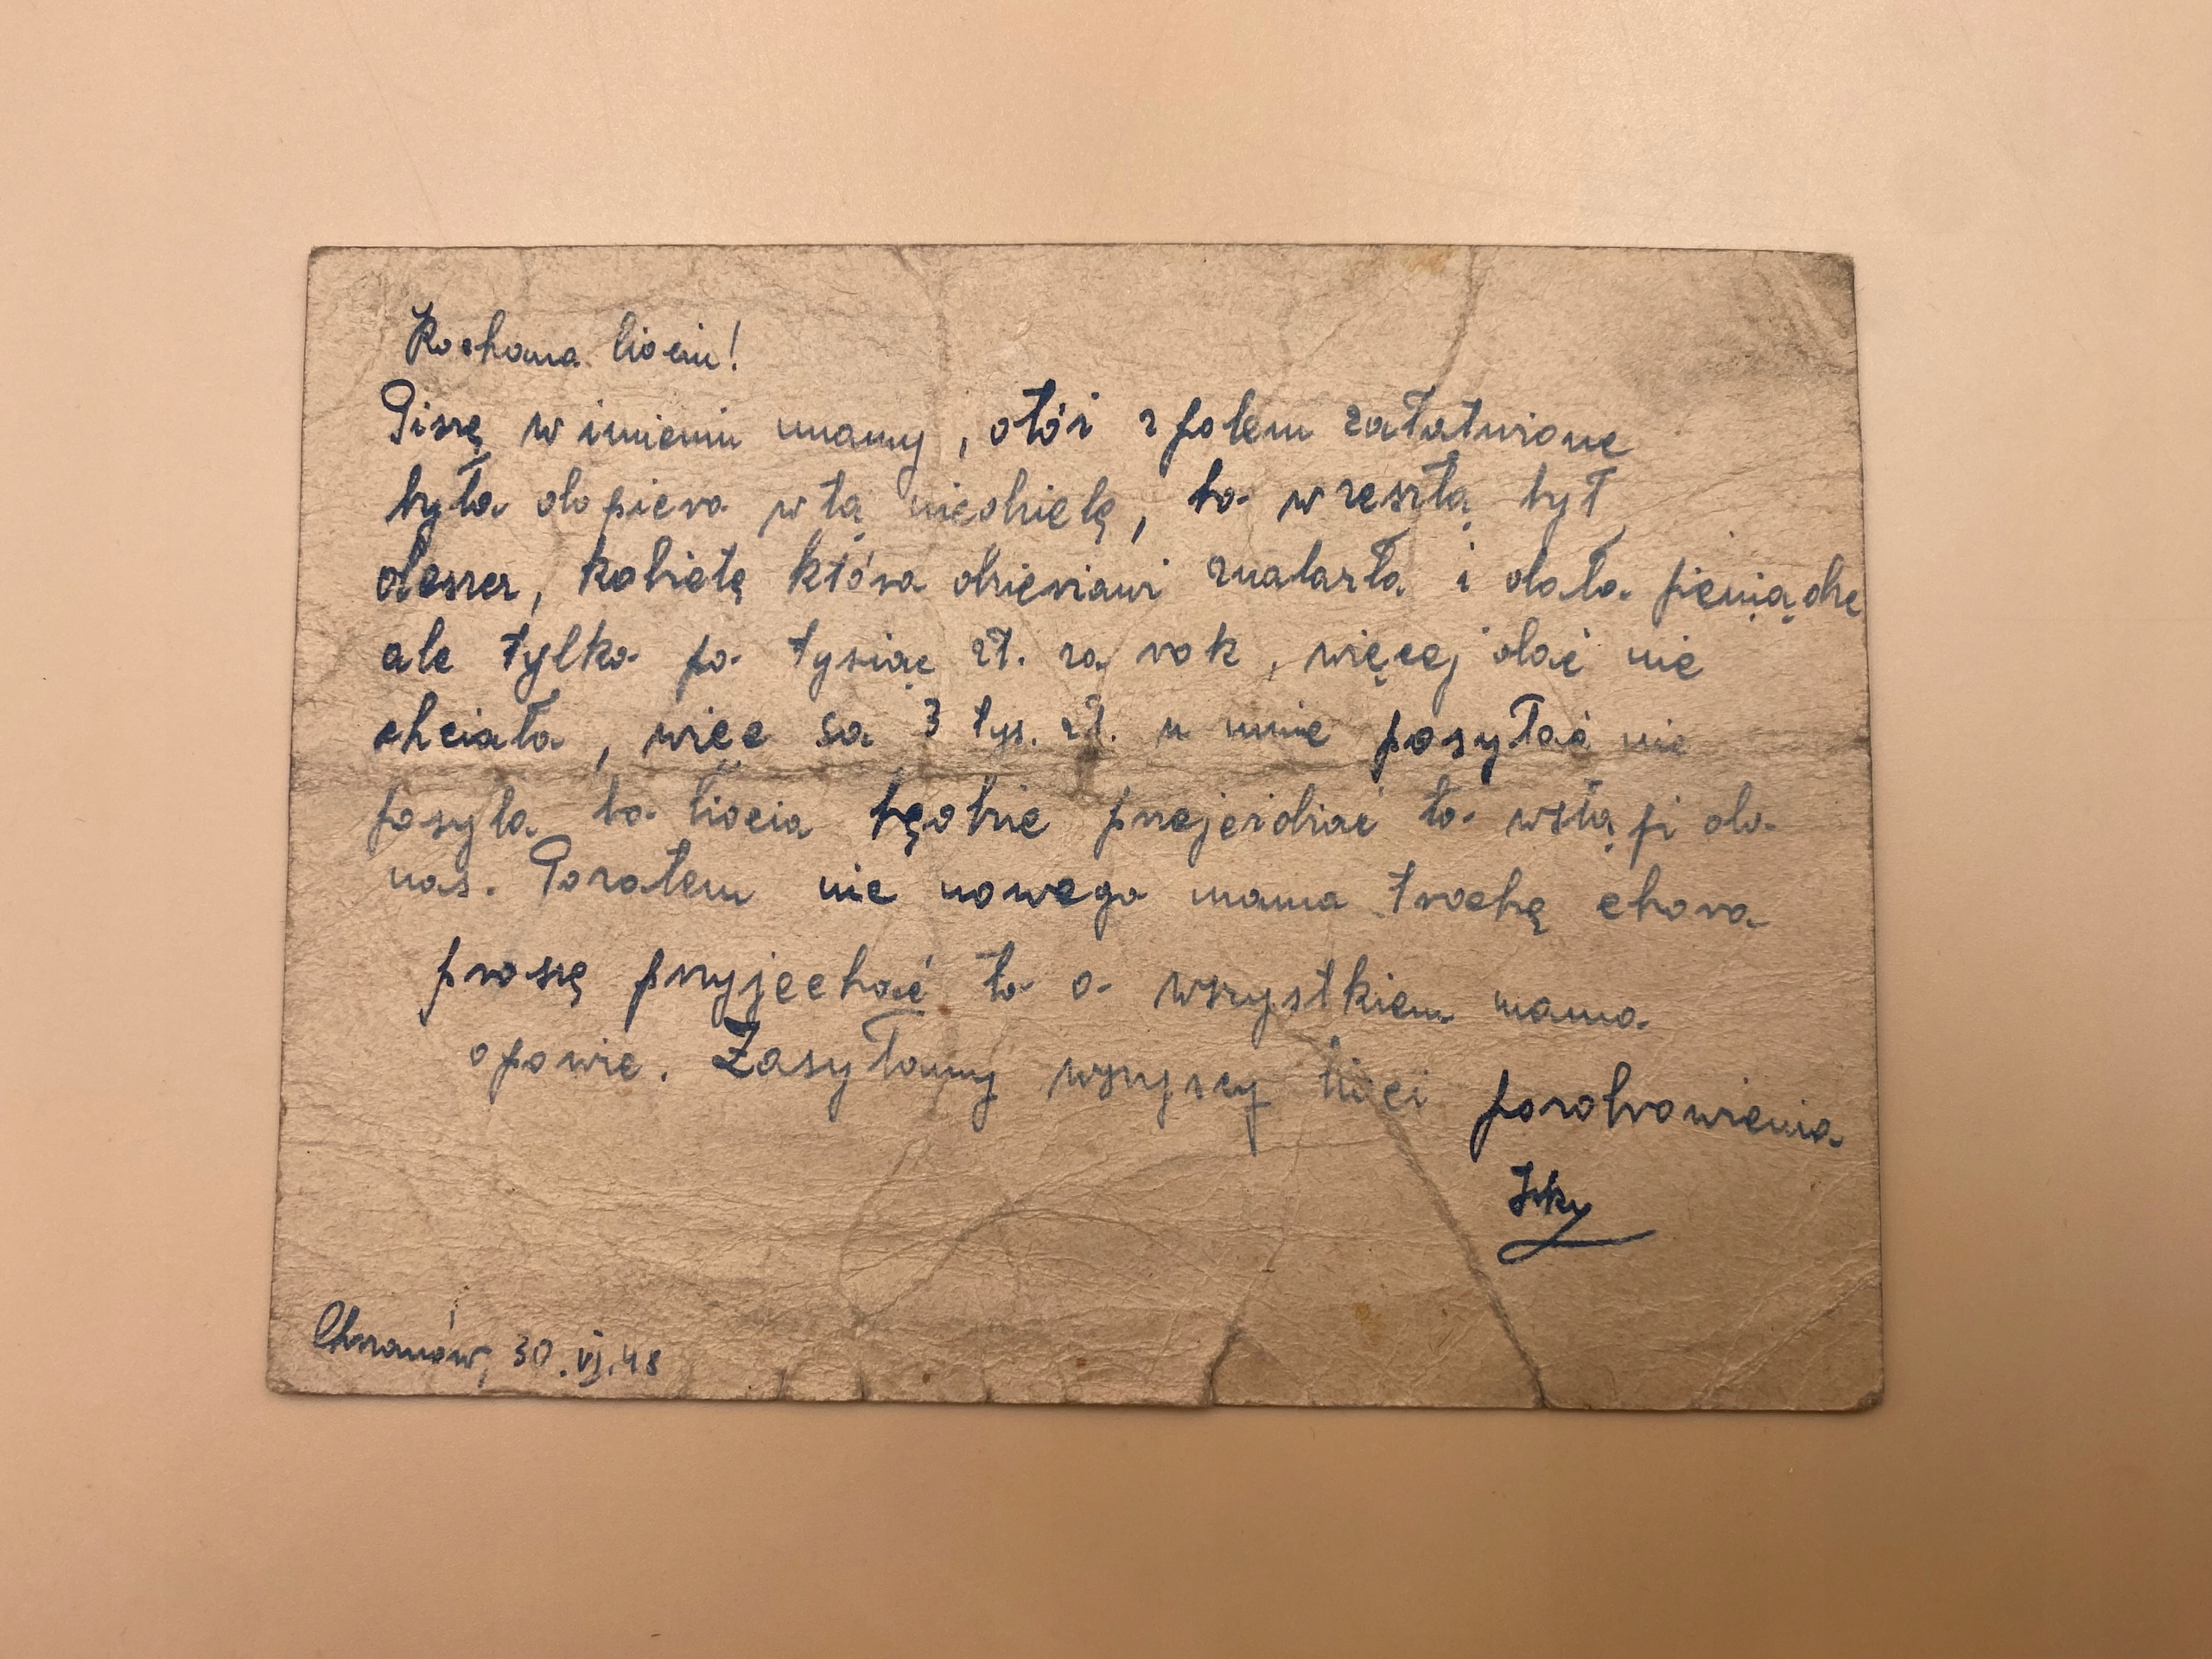 Kochana Ciociu!
Piszę w imieniu mamy, otóż z polem załatwione
było dopiero w tą niedzielę, bo w resztą był
deszcz, kobietę która dzierżawi znalazła i dała pieniądze
ale tylko po tysiąc zł. za rok, więcej dać nie
chciała, więc są 3 tys. zł. u mnie posyłać nie
posyła bo ciocia będzie przejeżdżać to wstąpi do
nas. Pozatem nic nowego mama trochę chora
proszę przyjechać to o wszystkiem mama
opowie. Zasyłamy wszyscy cioci pozdrowienia
Chrzanów, 30.VI.48